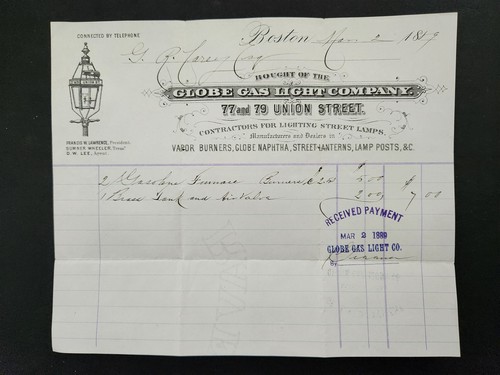 CONNECTED BY TELEPHONE
Boston Mar 2 1889
BOUGHT OF THE
GLOBE GAS LIGHT COMPANY.
77 and 79 UNION STREET.
CONTRACTORS FOR LIGHTING STREET LAMPS.
Manufacturers and Dealers in
VAPOR BURNERS, GLOBE NAPHTHA, STREET LANTERNS, LAMP POSTS, &C.
FRANCIS W. LAWRENCE, President.
SUMNER WHEELER, Treas.
D.W. LEE, Agent.
2 Gasoline Furnace Burners 5.00
1 Brass Tank and Air Valve 2.00 7.00
RECEIVED PAYMENT
MAR 2 1889
GLOBE GAS LIGHT CO.
BY